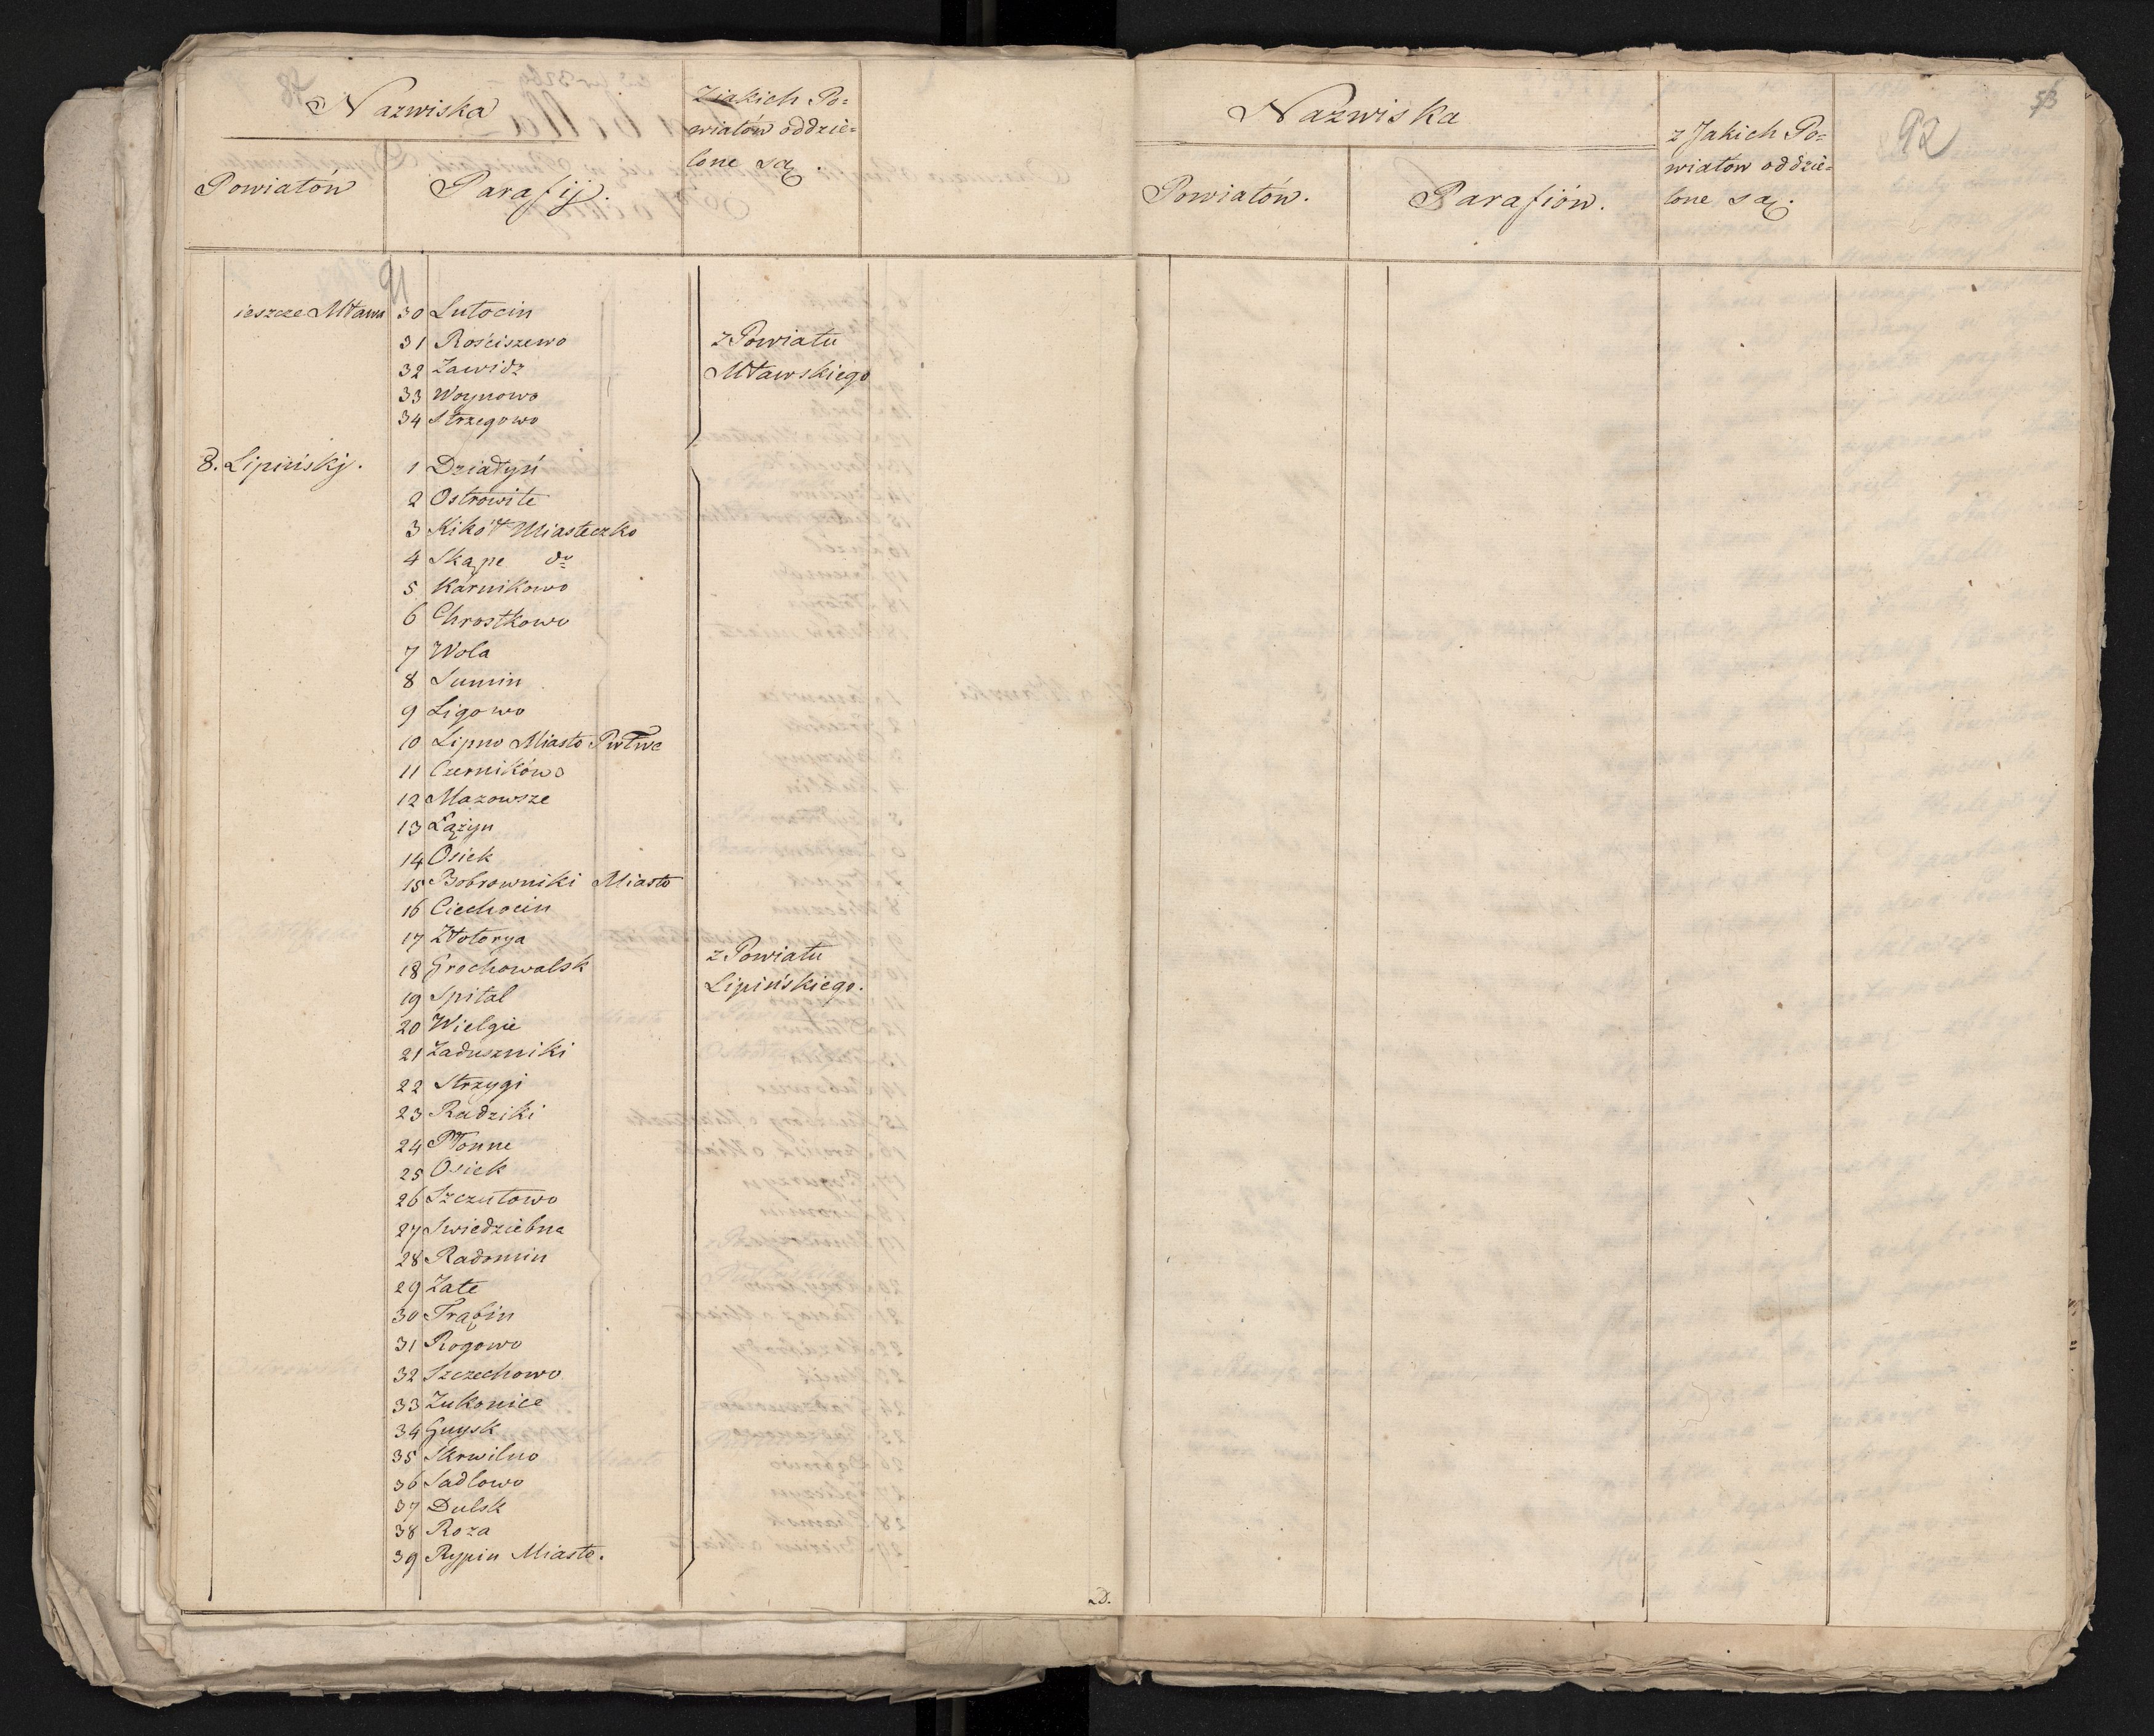 Nazwiska
Powiatów
Parafij.
Ziakich Po=
wiatów oddzie=
lone są.
91
ieszcze Mław
30 Lutocin
31 Rościszewo
32 Zawidz
33 Woynowo
34 Strzegowo
z Powiatu
Mławskiego
8. Lipiński.
1 Działyń
2 Ostrowite
3 Kikół Miasteczko
4 Skąpe do
5 Karnikowo
6 Chrostkowo
7 Wola
8 Sumin
9 Ligowo
10 Lipno Miasto Pwtwe
11 Czerników
12 Mazowsze
13 Łążyn
14 Osiek
15 Bobrowniki Miasto
16 Ciechocin
17 Złotorya
18 Grochowalsk
19 Spital
20 Wielgie
21 Zaduszniki
22 Strzygi
23 Radziki
24 Płonne
25 Osiek
26 Szczutowo
27 Swiedziebna
28 Radomin
29 Zate
30 Trąbin
31 Rogowo
32 Szczechowo
33 Zukonice
34 Guysk
35 Skrwilno
36 Sadlowo
37 Dulsk
38 Roza
39 Rypin Miasto.
z Powiatu
Lipińskiego.
D.
Nazwiska
Powiatów.
Parafiów.
z Jakich Po=
wiatów oddzie=
lone są.
92
53